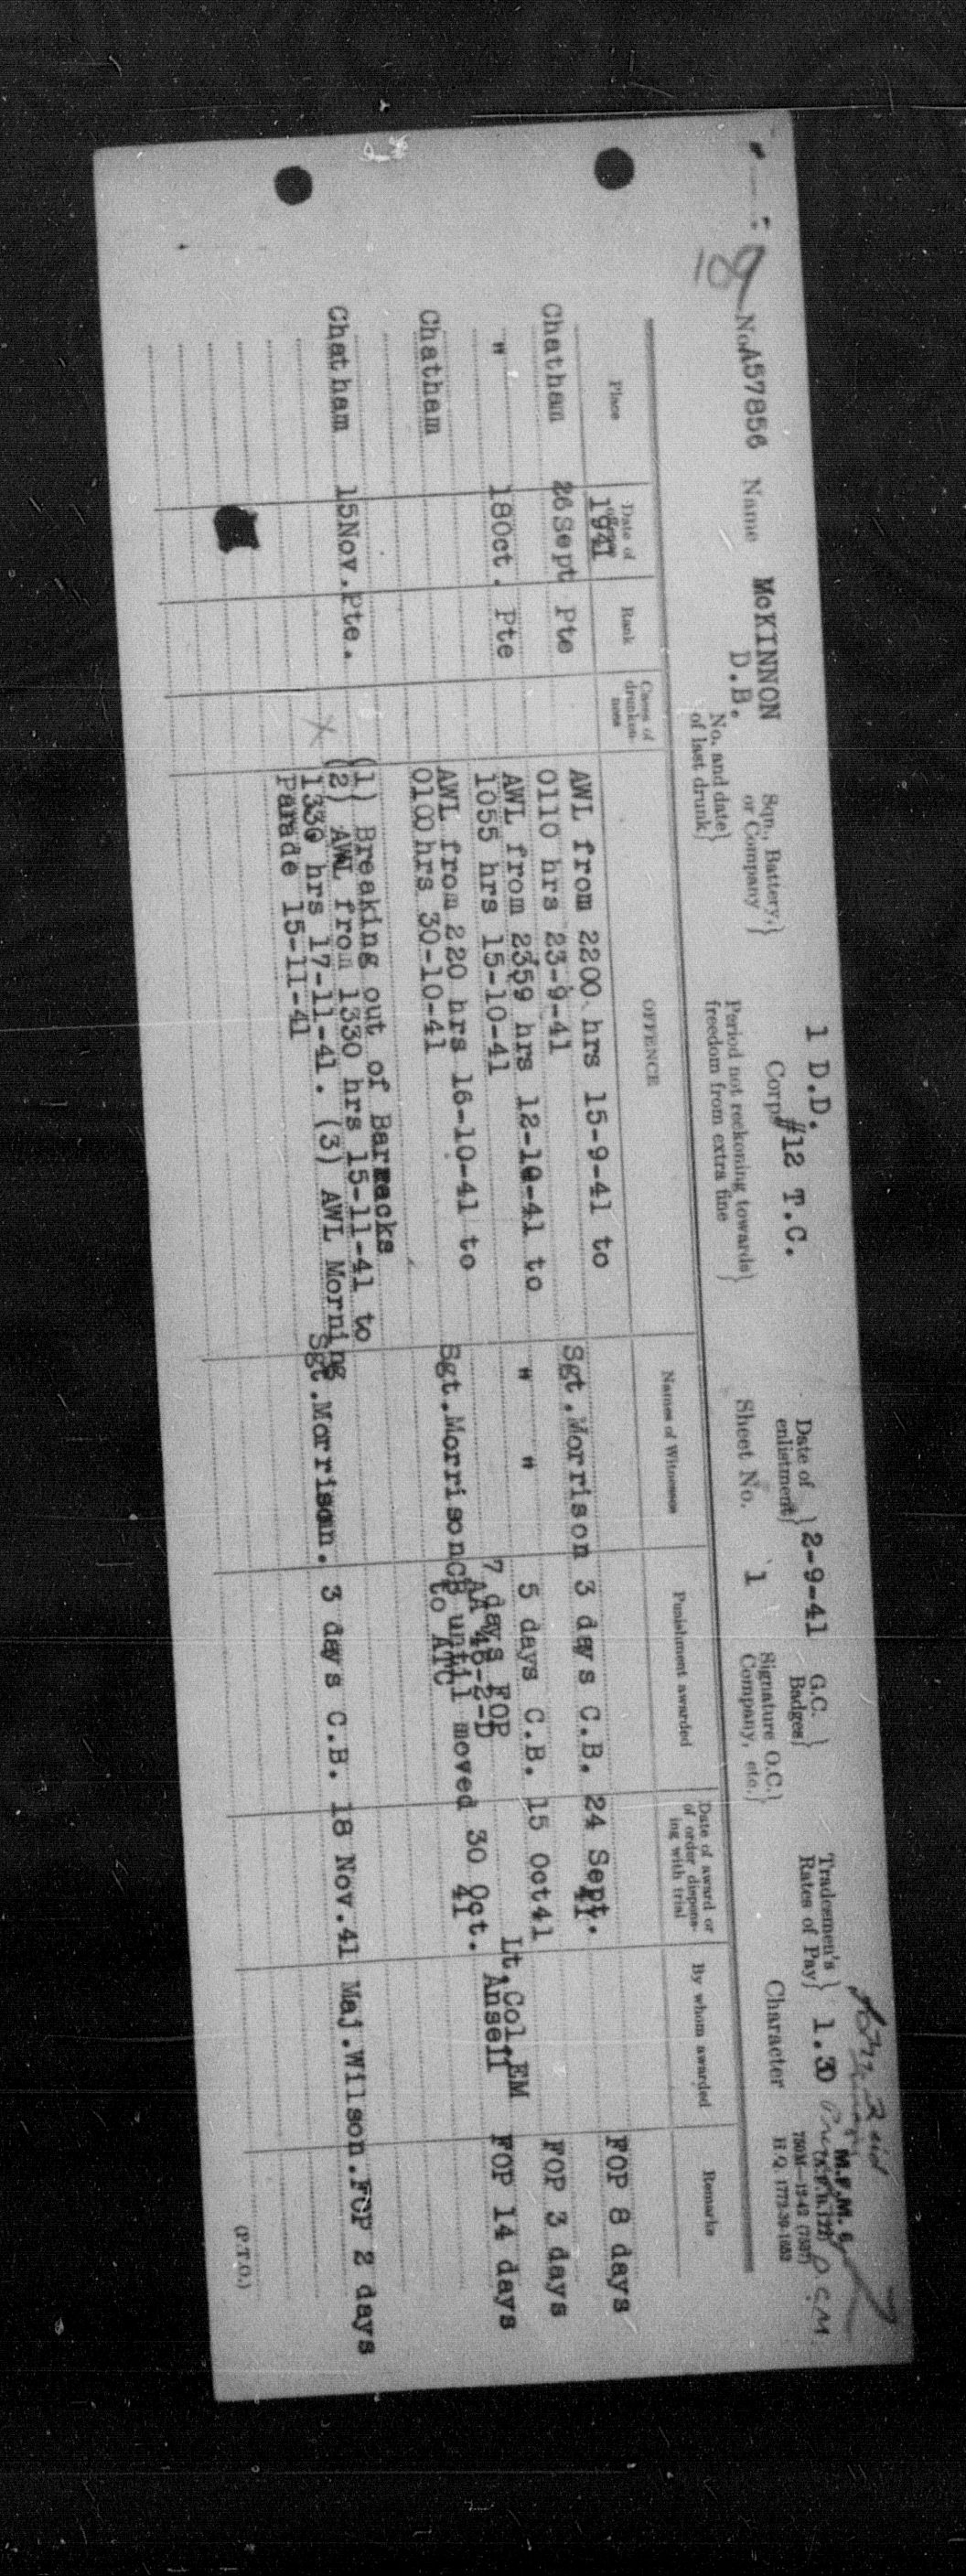 109
1 D.D.
M.F.M. 6
No. A57856 Name McKINNON D.B. Sqn., Battery, or Company} Corps #12 T.C. Date of enlistment} 2-9-41 G.C. Badges} Tradesmen's Rates of Pay} 1.30
750M—12-42 (7537)
H.Q. 1772-39-1652
No. and date of last drunk} Period not reckoning towards freedom from extra fine} Sheet No. 1 Signature O.C. Company, etc.} Character
Place Date of Rank Cases of drunkenness OFFENCE Names of Witnesses Punishment awarded Date of award or of order dispensing with trial By whom awarded Remarks
1941
Chatham 26Sept Pte AWL from 2200 hrs 15-9-41 to Sgt.Morrison 3 days C.B. 24 Sept. 41 FOP 8 days
0110 hrs 23-9-41
" 18Oct. Pte AWL from 2359 hrs 12-10-41 to " " 5 days C.B. 15 Oct41 FOP 3 days
1055 hrs 15-10-41
7 days FOP
Lt.Col.EM Ansell FOP 14 days
AA 46-2-D
Chatham AWL from 220 hrs 16-10-41 to Sgt.Morrison CB until moved 30 Oct. 41
0100hrs 30-10-41 to ATC
(1) Breaking out of Barracks
Chatham 15Nov. Pte. (2) AWL from 1330 hrs 15-11-41 to
1330 hrs 17-11-41. (3) AWL Morning Sgt.Morrison. 3 days C.B. 18 Nov.41 Maj.Wilson. FOP 2 days
X Parade 15-11-41
(P.T.O.)